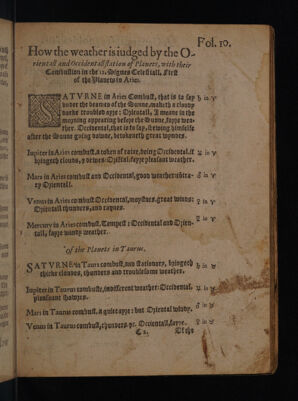 Fol. 10.
How the weather is iudged by the O-
rientall and Occidentall station of Planets, with their
Combustion in the 12. Signes Celestiall. First
of the Planets in Aries.
SATVRNE in Aries Combust, that is to say ♄ in ♈
vnder the beames of the Sunne, maketh a cloudy
darke troubled ayre: Orientall, I meane in the
morning appearing before the Sunne, fayre wea-
ther. Occidental, that is to say, shewing himselfe
after the Sunne going downe, betokeneth great wyndes.
Iupiter in Aries combust, a token of raine, being Occidental, it ♃ ♈
bringeth clouds, Oriental, fayre pleasant weather.
Mars in Aries combust and Occidental, good weather ♂ in ♈
Oriental.
Venus in Aries combust Occidental, moysture, great winds: ♀ in ♈
Orientall thunders, and raynes.
Mercury in Aries combust, Tempest: Occidental and Orien- ☿ in ♈
tall, fayre windy weather.
Of the Planets in Taurus.
SATVRNE in Taurus combust, and stationary, bringeth ♄ in ♉
thicke cloudes, thunders and troublesome weather.
Iupiter in Taurus combuste, indifferent weather: Occidental, ♃ in ♉
pleasant showres.
Mars in Taurus combust, a quiet ayre: but Oriental windy. ♂ in ♉
Venus in Taurus combust, thunders &c. Orientall, fayre. ♀ in ♉
C 2.